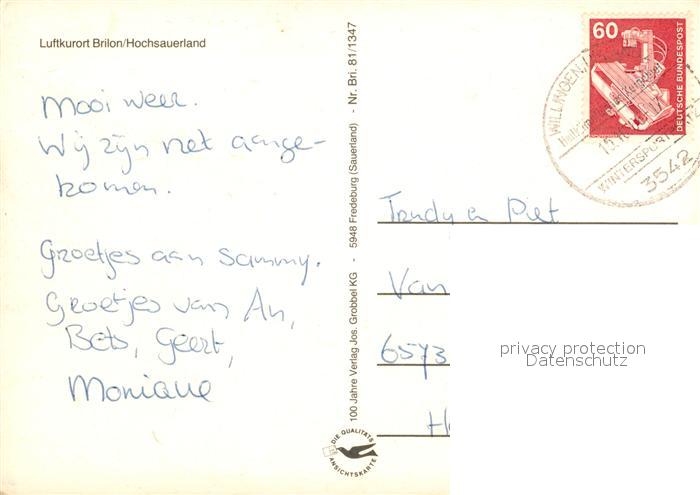 Luftkurort Brilon/Hochsauerland
Mooi weer.
Wij zijn net aange-
komen.
Groetjes aan Sammy.
Groetjes van An,
Bets, Geert,
100 Jahre Verlag Jos. Grobbel KG - 5948 Fredeburg (Sauerland) - Nr. Bri. 81/1347
DIE QUALITÄTS
ANSICHTSKARTE
60
DEUTSCHE BUNDESPOST
WILLINGEN
WINTERSPORTPLATZ
3542
Trudy en Piet
Van
6573
privacy protection
Datenschutz